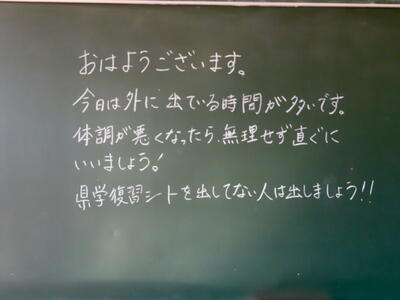 おはようございます。
今日は外に出ている時間が多いです。
体調が悪くなったら、無理せず直ぐに
いいましょう!
県学復習シートを出してない人は出しましょう!!